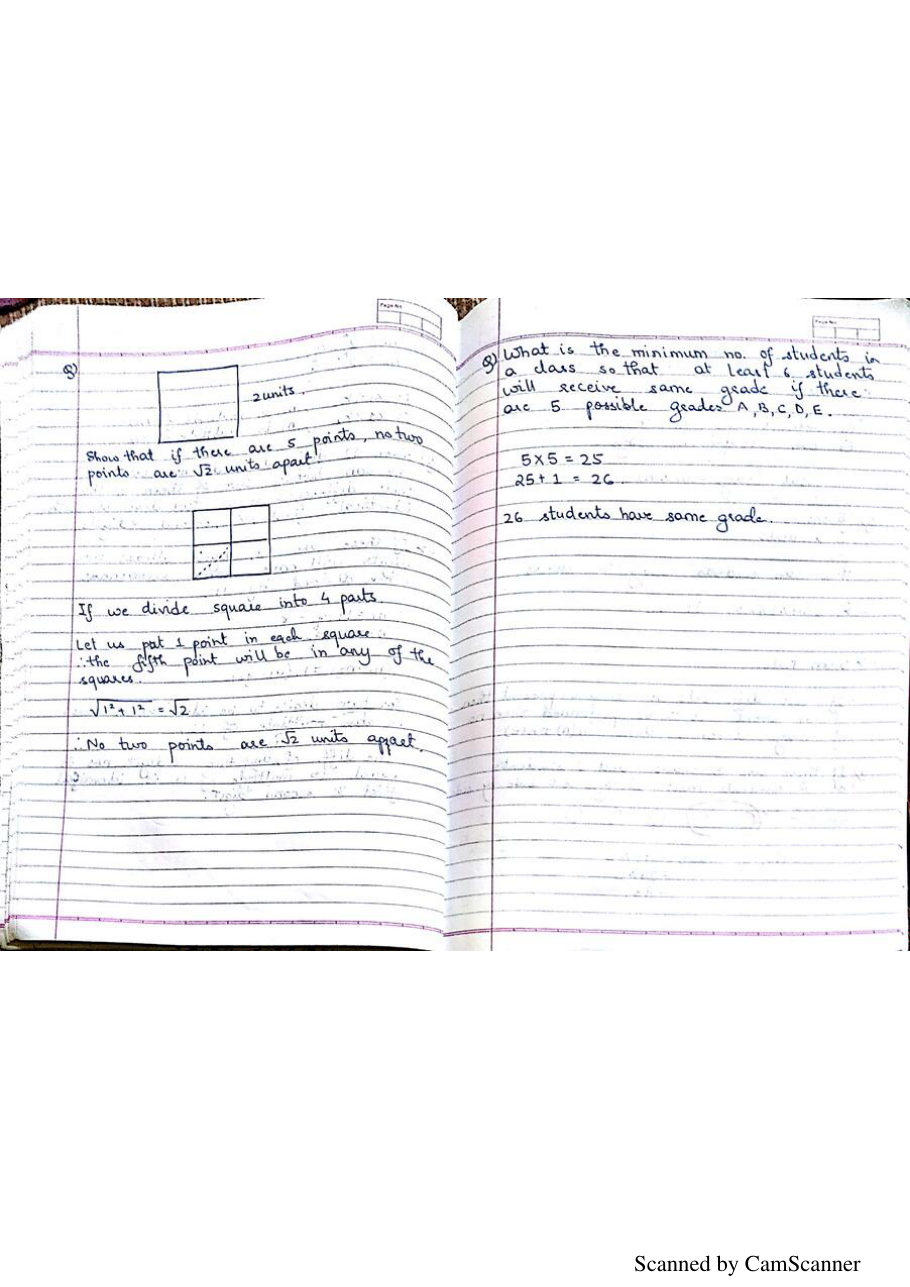 Page No.
Q)
2 units.
Show that if there are 5 points, no two
points are √2 units apart.
If we divide square into 4 parts
Let us put 1 point in each square
∴ the fifth point will be in any of the
squares.
√1² + 1² = √2
∴ No two points are √2 units appart.
Page No.
Q) What is the minimum no. of students in
a class so that at least 6 students
will receive same grade if there
are 5 possible grades A, B, C, D, E.
5 x 5 = 25
25 + 1 = 26.
26 students have same grade.
Scanned by CamScanner